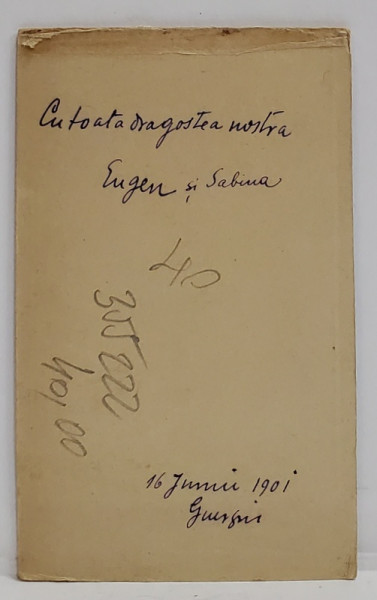 Cu toata dragostea nostra
Eugen și Sabina
40
355222
40,00
16 Junii 1901